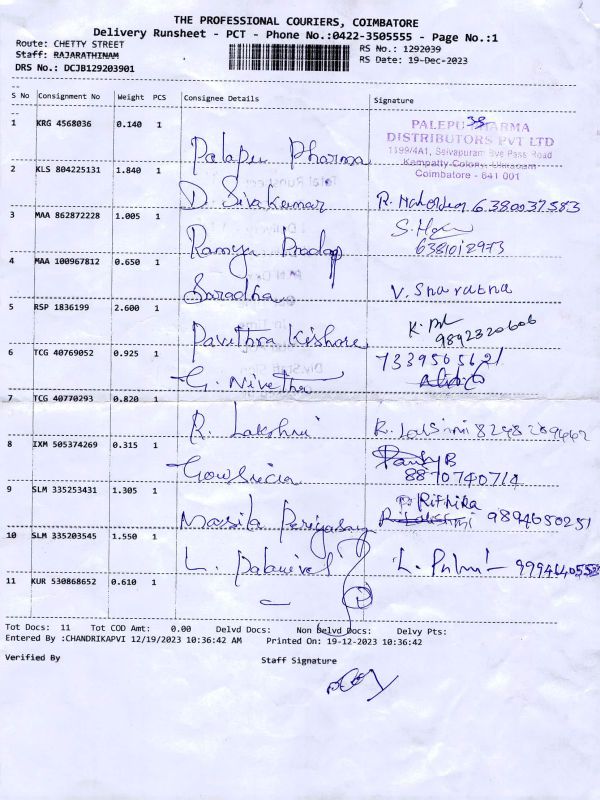 THE PROFESSIONAL COURIERS, COIMBATORE
Delivery Runsheet - PCT - Phone No.:0422-3505555 - Page No.:1
Route: CHETTY STREET RS No.: 1292039
Staff: RAJARATHINAM RS Date: 19-Dec-2023
DRS No.: DCJB129203901
S No Consignment No Weight PCS Consignee Details Signature
1 KRG 4568036 0.140 1 Palapu Pharma
PALEPU PHARMA
DISTRIBUTORS PVT LTD
1199/4A1, Selvapuram Bye Pass Road
Kempatty Colony, Ukkadam
Coimbatore - 641 001
2 KLS 804225131 1.840 1 D. Siva Kumar 6380037583
3 MAA 862872228 1.005 1 Ramya Pradap 6381012973
4 MAA 100967812 0.650 1 Saradha V.
5 RSP 1836199 2.600 1 Pavithra Kishore 9892320606
6 TCG 40769052 0.925 1 G. Nivetha 7339565621
7 TCG 40770293 0.820 1 R. Lakshmi R.
8 IXM 505374269 0.315 1 8870740714
9 SLM 335253431 1.305 1 Masila Periyasamy Rithika 9894650251
10 SLM 335203545 1.550 1 L. Palanivel L.
11 KUR 530868652 0.610 1
Tot Docs: 11 Tot COD Amt: 0.00 Delvd Docs: Non Delvd Docs: Delvy Pts:
Entered By :CHANDRIKAPVI 12/19/2023 10:36:42 AM Printed On: 19-12-2023 10:36:42
Verified By Staff Signature